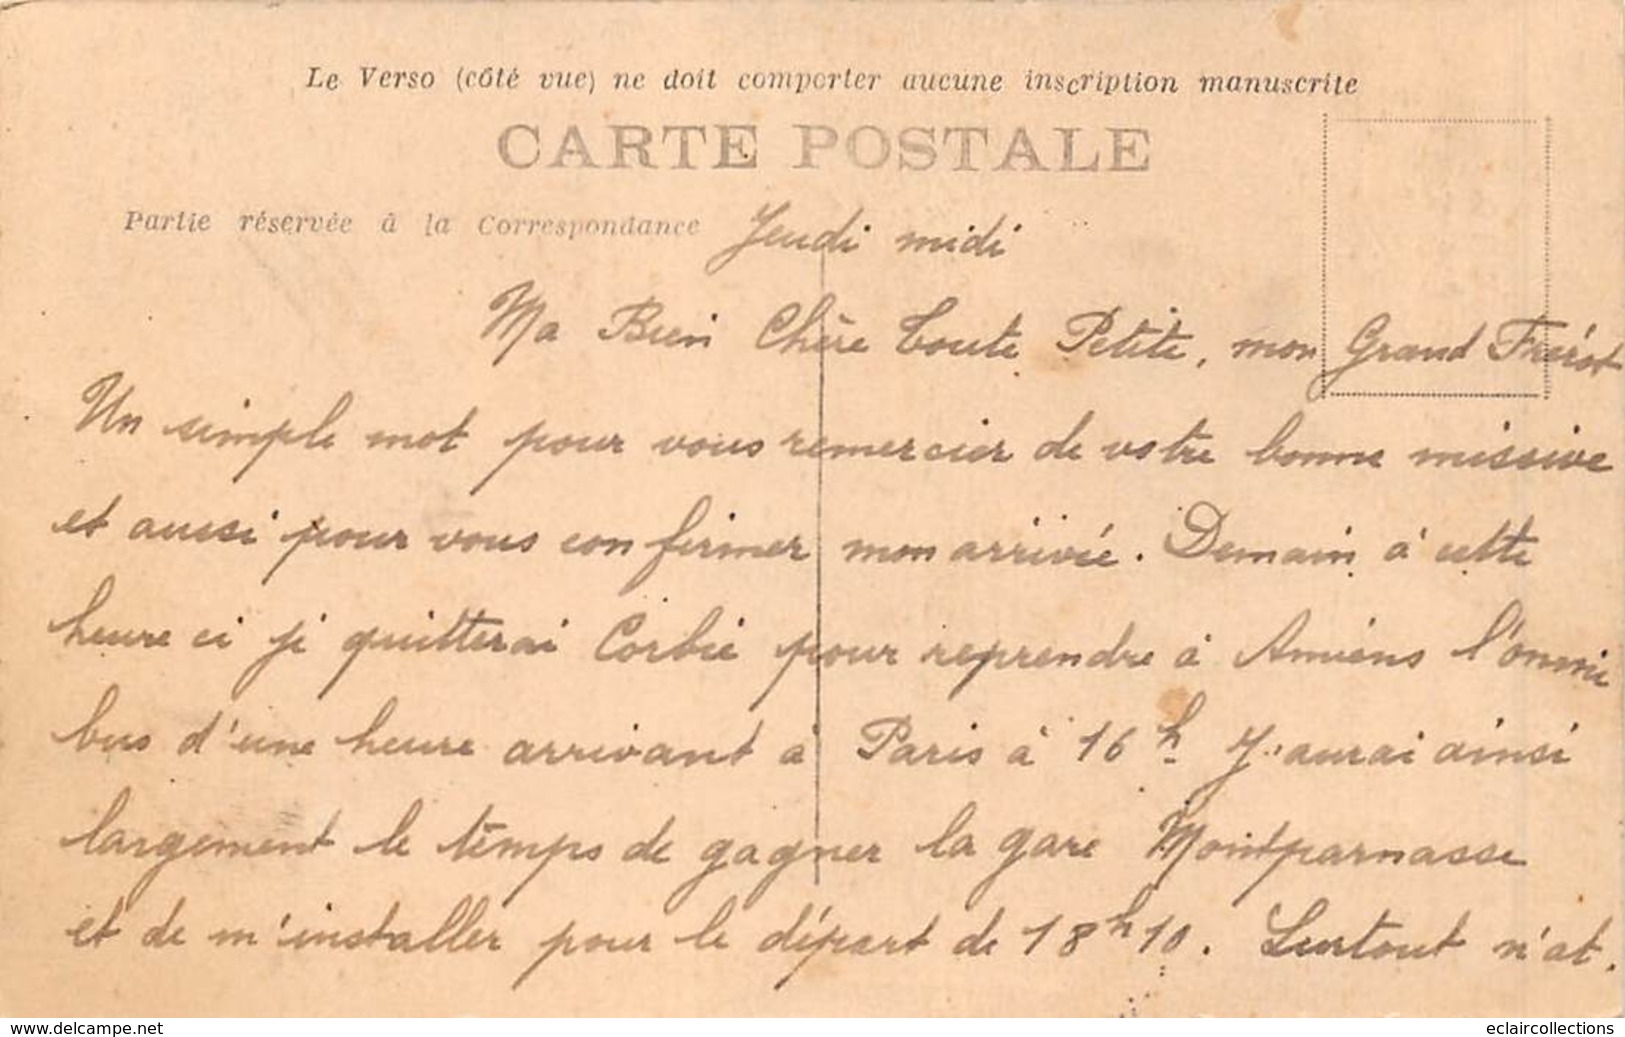 Le Verso (côté vue) ne doit comporter aucune inscription manuscrite
CARTE POSTALE
Partie réservée à la Correspondance
Jeudi midi
Ma Bien Chère Toute Petite, mon Grand Frérot
Un simple mot pour vous remercier de votre bonne missive
et aussi pour vous confirmer mon arrivée. Demain à cette
heure ci je quitterai Corbie pour reprendre à Amiens l'omni
bus d'une heure arrivant à Paris à 16 h J'aurai ainsi
largement le temps de gagner la gare Montparnasse
et de m'installer pour le départ de 18 h 10. Surtout n'at.
www.delcampe.net
eclaircollections